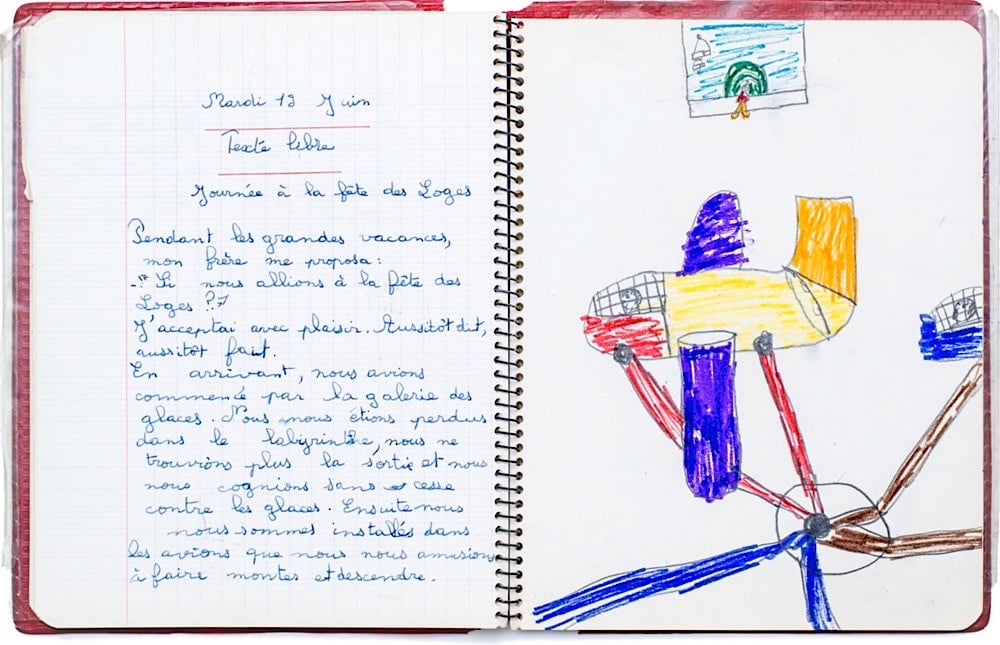 Mardi 12 Juin
Texte libre
Journée à la fête des Loges
Pendant les grandes vacances,
mon frère me proposa :
- " Si nous allions à la fête des
Loges ? "
J'acceptai avec plaisir. Aussitôt dit,
aussitôt fait.
En arrivant, nous avions
commencé par la galerie des
glaces. Nous nous étions perdus
dans le labyrinthe, nous ne
trouvions plus la sortie et nous
nous cognions sans cesse
contre les glaces. Ensuite nous
nous sommes installés dans
les avions que nous nous amusions
à faire montes et descendre.